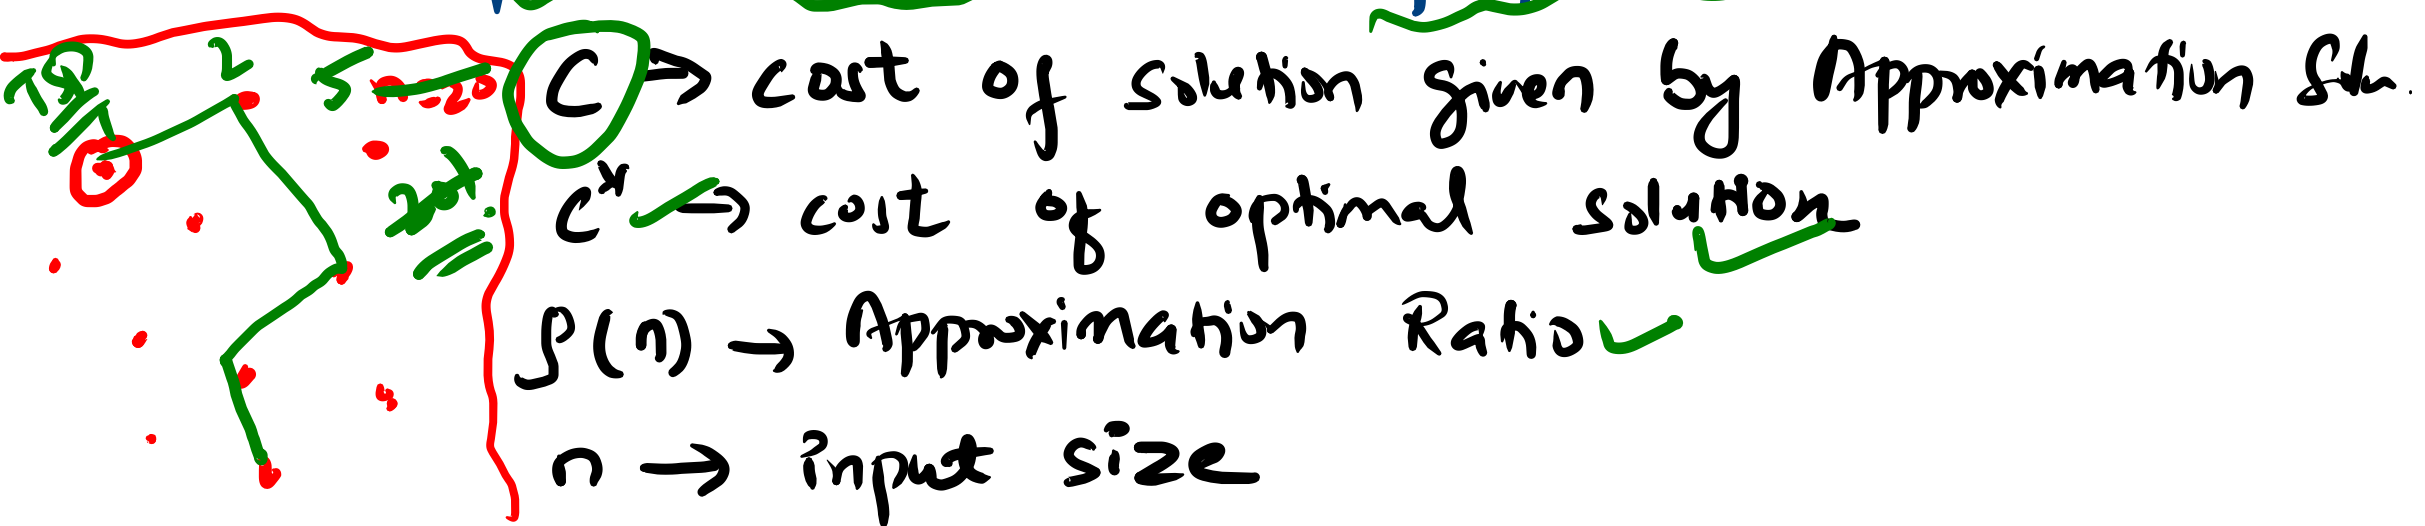 TSP
n=20
C → cost of solution given by Approximation Soln.
C* → cost of optimal solution
ρ(n) → Approximation Ratio
n → input size